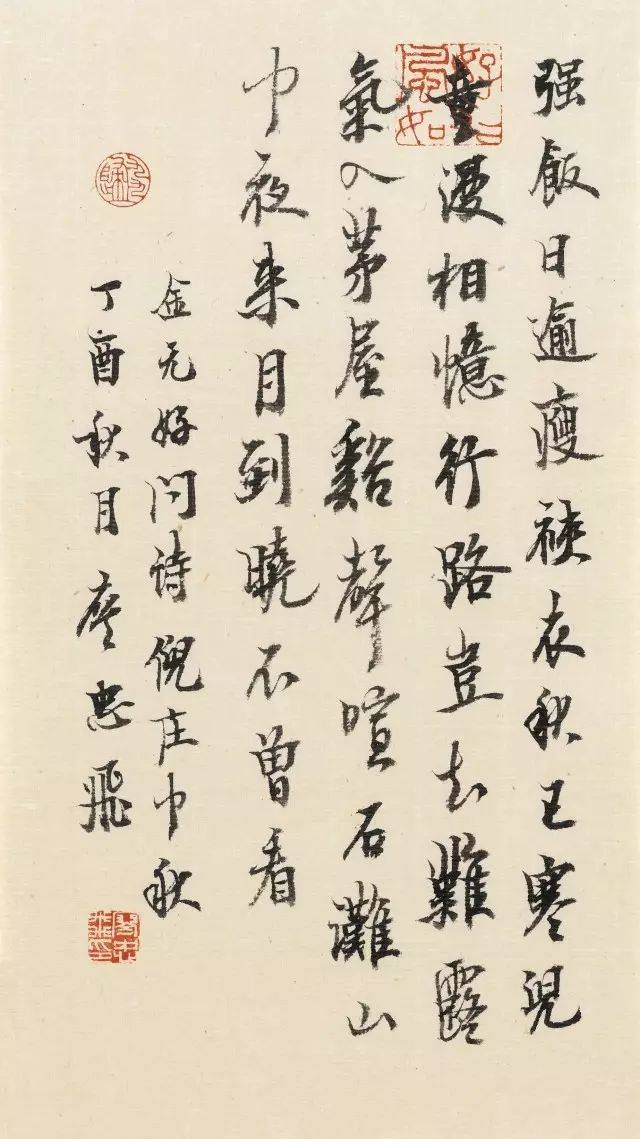 强飯日逾瘦裌衣秋已寒兒
童漫相憶行路豈知難露
氣入茅屋谿聲喧石灘山
中夜来月到曉不曾看
金元好问诗倪庄中秋
丁酉秋月忠飛